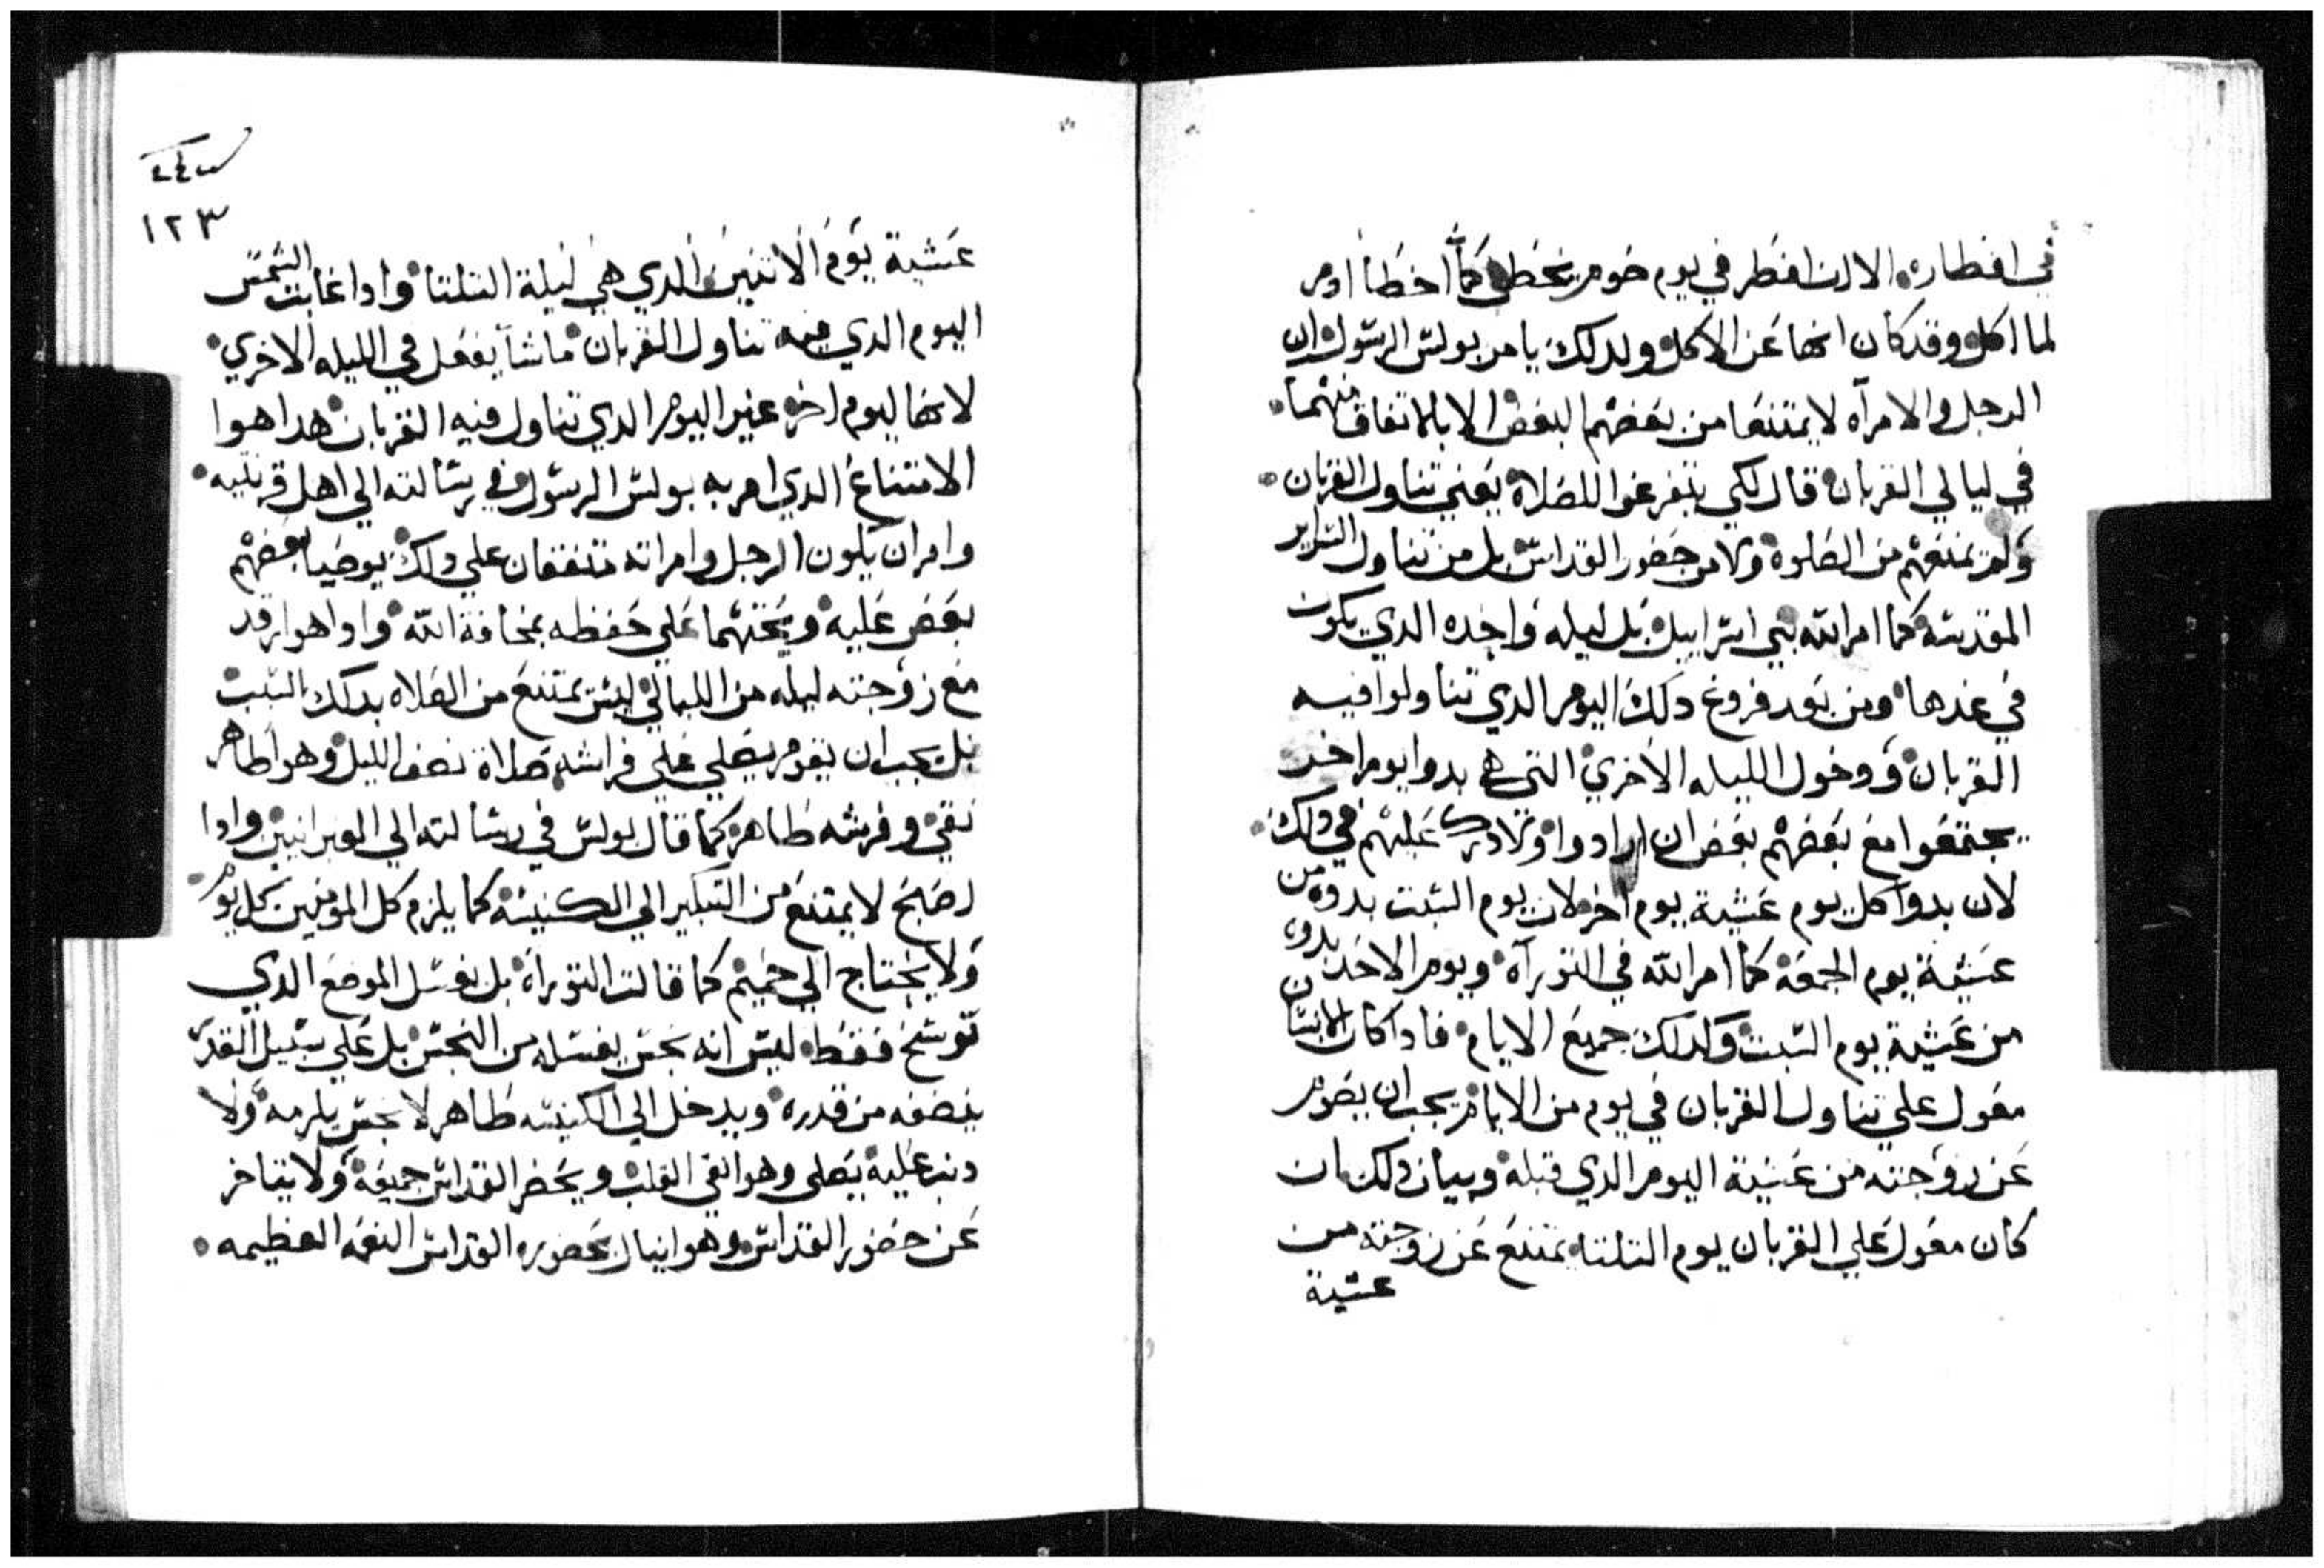 في افطاره الا ان افطر في يوم صوم يخطي كما اخطا ادم
لما اكل وقد كان انها عن الاكل ولدلك يامر بولس الرسول ان
الرجل والامرآه لا يمتنعا من بعضهما لبعض الا بالاتفاق منهما
في ليالي القربان قال لكي يتفرغوا للصلاة يعني تناول القربان
ولم يمنعهم من الصلوة ولا من حضور القداس بل من تناول السراير
المقدسة كما امر الله بني اسراييل بل ليله واحده الدي يكون
في غدها ومن بعد فروغ دلك اليوم الدي تناولوا فيه
القربان ودخول الليله الاخري التي هي بدوا يوم اخر
يجتمعوا مع بعضهم بعض ان ارادوا ولا درك عليهم في دلك
لان بدوا كل يوم عشية يوم اخر لان يوم السبت بدوه من
عشية يوم الجمعة كما امر الله في التورآة ويوم الاحد بدوه
من عشية يوم السبت وكدلك جميع الايام فادا كان الانسان
معول علي تناول القربان في يوم من الايام يجب ان يصوم
عن زوجته من عشية اليوم الدي قبله وبيان دلك ان
كان معول علي القربان يوم التلتا يمتنع عن زوجته من
عشية
١٢٣
عشية يوم الاتنين الدي هي ليلة التلتا وادا غابت الشمس
اليوم الدي فيه تناول القربان ماشا يفعل في الليله الاخري
لانها ليوم اخر غير اليوم الدي تناول فيه القربان هدا هوا
الامتناع الدي امر به بولس الرسول في رسالته الي اهل قرنتيه
وامر ان يكون الرجل وامراته متفقان علي دلك يوصيا بعضهم
بعض عليه ويحتهما علي حفظه بمخافة الله وادا هوا رقد
مع زوجته ليله من الليالي ليس يمتنع من الصلاه بدلك السبب
بل يجب ان يقوم يصلي علي فراشه صلاة نصف الليل وهوا طاهر
نقي وفرشه طاهر كما قال بولس في رسالته الي العبرانيين وادا
اصبح لا يمتنع من التبكير الي الكنيسة كما يلزم كل المومنين كل يوم
ولا يحتاج الي حميم كما قالت التوراة بل يغسل الموضع الدي
توسخ فقط ليس انه نجس يغسله من النجس بل علي سبيل القدر
ينضفه من قدره ويدخل الي الكنيسه طاهر لا نجس يلزمه ولا
دنب عليه يصلي وهوا نقي القلب ويحضر القداس جميعه ولا يتاخر
عن حضور القداس وهوا ينال بحضوره القداس النعمه العظيمه